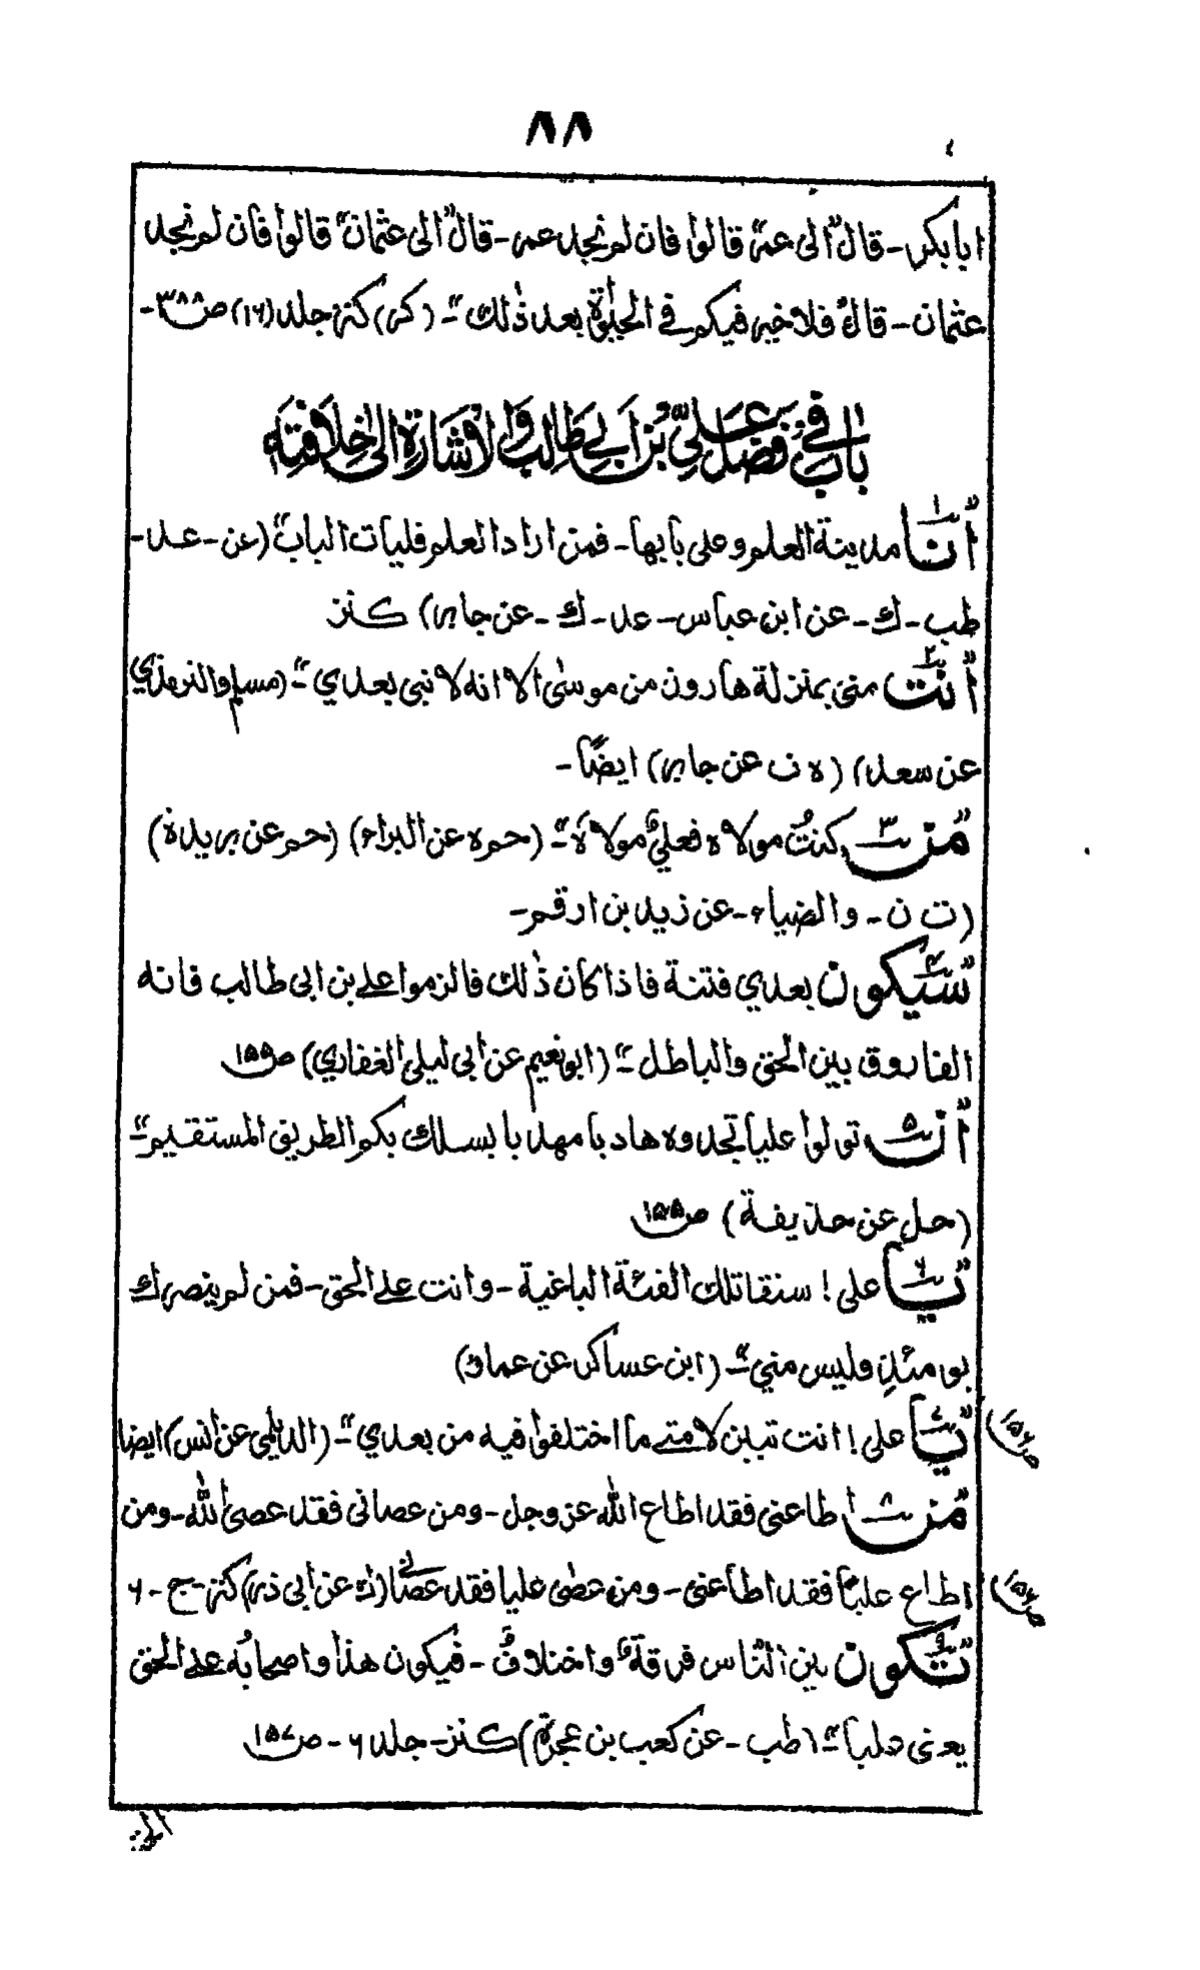 ٨٨
ابابكر - قال "الى عمر" قالوا فان لم نجد عمر - قال "الى عثمان" قالوا فان لم نجد
عثمان - قال فلا خير فيكم في الحيٰوة بعد ذٰلك" - (كر) كنز جلد (١٦) ص ٣٨٨ -
باب في فضل علي بن ابي طالب والاشارة الى خلافته
١ "أنا مدينة العلم وعلى بابها - فمن اراد العلم فليات الباب" (عن - عد -
طب - ك - عن ابن عباس - عد - ك - عن جابر) كنز
٢ "أنت منى بمنزلة هارون من موسىٰ الا انه لا نبى بعدي" - (مسلم والترمذي
عن سعد) (ه ت عن جابر) ايضًا -
٣ "من كنتُ مولاه فعليٌ مولاهُ" - (حم ه عن البراء) (حم عن بريدة)
(ت ن - والضياء - عن زيد بن ارقم -
٤ "سيكون بعدي فتنة فاذا كان ذٰلك فالزموا على بن ابى طالب فانه
الفاروق بين الحق والباطل" - (ابو نعيم عن ابى ليلى الغفاري) ص ١٥٥
٥ "أن تولوا عليا تجدوه هاديا مهديا يسلك بكم الطريق المستقيم" -
(حل عن حذيفة) ص ١٥٥
٦ "يا على! سنقاتلك الفئة الباغية - وانت على الحق - فمن لم ينصرك
يومئذٍ فليس مني" - (ابن عساكر عن عمار)
٧ "يا على! انت تبين لامتى ما اختلفوا فيه من بعدي" - (الديلمى عن انس) ايضا
ص ١٥٦
٨ "من اطاعنى فقد اطاع الله عز وجل - ومن عصانى فقد عصى الله - ومن
اطاع عليا فقد اطاعنى - ومن عصى عليا فقد عصانى (ك عن ابى ذر) كنز - ج - ٦
ص ١٥٦
٩ "تكون بين النّاس فرقةٌ واختلافٌ - فيكون هذا واصحابُه على الحق
يعنى عليا" - (طب - عن كعب بن عجرة) كنز - جلد ٦ - ص ١٥٧